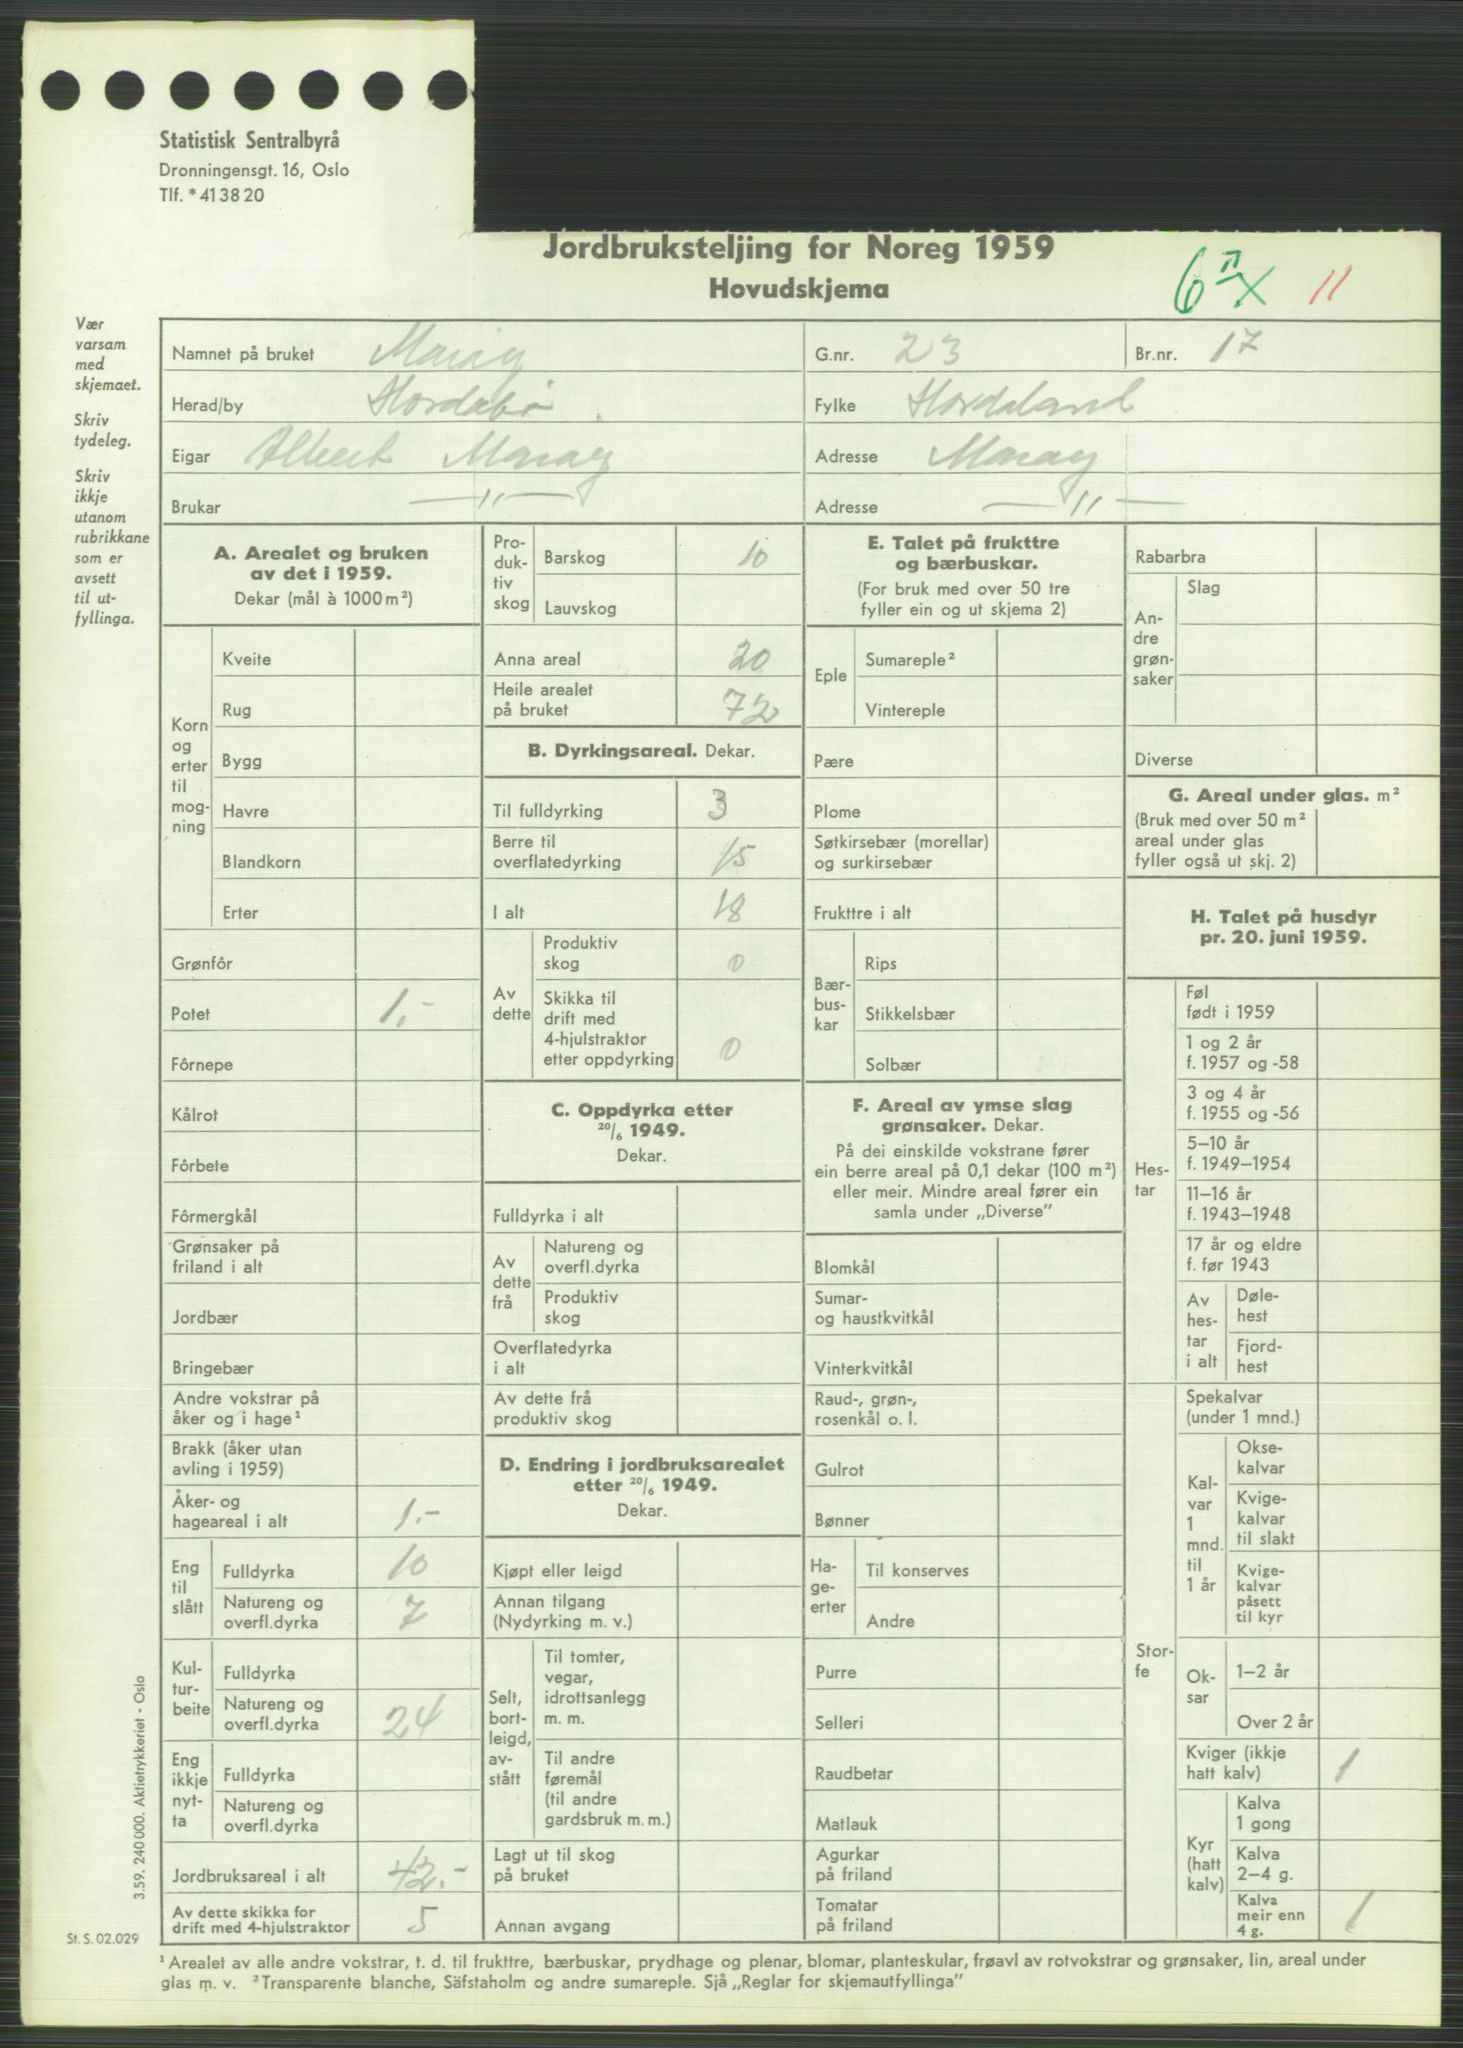 Statistisk Sentralbyrå
Dronningensgt. 16, Oslo
Tlf. *413820
Jordbruksteljing for Noreg 1959
Hovudskjema
6 11
Vær
varsam
med
skjemaet.
Skriv
tydeleg.
Skriv
ikkje
utanom
rubrikkane
som er
avsett
til ut-
fyllinga.
Namnet på bruket
G.nr. 23
Br.nr. 17
Herad/by Hordabø
Fylke Hordaland
Eigar Albert
Adresse
Brukar — " —
Adresse — " —
A. Arealet og bruken
av det i 1959.
Dekar (mål à 1000 m²)
Korn
og
erter
til
mog-
ning
Kveite
Rug
Bygg
Havre
Blandkorn
Erter
Grønfôr
Potet 1,-
Fôrnepe
Kålrot
Fôrbete
Fôrmergkål
Grønsaker på
friland i alt
Jordbær
Bringebær
Andre vokstrar på
åker og i hage¹
Brakk (åker utan
avling i 1959)
Åker- og
hageareal i alt 1.-
Eng
til
slått
Fulldyrka 10
Natureng og
overfl.dyrka 7
Kul-
tur-
beite
Fulldyrka
Natureng og
overfl.dyrka 24
Eng
ikkje
nyt-
ta
Fulldyrka
Natureng og
overfl.dyrka
Jordbruksareal i alt 42.-
Av dette skikka for
drift med 4-hjulstraktor 5
Pro-
duk-
tiv
skog
Barskog 10
Lauvskog
Anna areal 20
Heile arealet
på bruket 72
B. Dyrkingsareal. Dekar.
Til fulldyrking 3
Berre til
overflatedyrking 15
I alt 18
Av
dette
Produktiv
skog 0
Skikka til
drift med
4-hjulstraktor
etter oppdyrking 0
C. Oppdyrka etter
20/6 1949.
Dekar.
Fulldyrka i alt
Av
dette
frå
Natureng og
overfl.dyrka
Produktiv
skog
Overflatedyrka
i alt
Av dette frå
produktiv skog
D. Endring i jordbruksarealet
etter 20/6 1949.
Dekar.
Kjøpt eller leigd
Annan tilgang
(Nydyrking m. v.)
Selt,
bort-
leigd,
av-
stått
Til tomter,
vegar,
idrottsanlegg
m. m.
Til andre
føremål
(til andre
gardsbruk m. m.)
Lagt ut til skog
på bruket
Annan avgang
E. Talet på frukttre
og bærbuskar.
(For bruk med over 50 tre
fyller ein og ut skjema 2)
Eple
Sumareple²
Vintereple
Pære
Plome
Søtkirsebær (morellar)
og surkirsebær
Frukttre i alt
Bær-
bus-
kar
Rips
Stikkelsbær
Solbær
F. Areal av ymse slag
grønsaker. Dekar.
På dei einskilde vokstrane fører
ein berre areal på 0,1 dekar (100 m²)
eller meir. Mindre areal fører ein
samla under „Diverse”
Blomkål
Sumar-
og haustkvitkål
Vinterkvitkål
Raud-, grøn-,
rosenkål o. l.
Gulrot
Bønner
Ha-
ge-
erter
Til konserves
Andre
Purre
Selleri
Raudbetar
Matlauk
Agurkar
på friland
Tomatar
på friland
Rabarbra
An-
dre
grøn-
saker
Slag
Diverse
G. Areal under glas. m²
(Bruk med over 50 m²
areal under glas
fyller også ut skj. 2)
H. Talet på husdyr
pr. 20. juni 1959.
Hes-
tar
Føl
født i 1959
1 og 2 år
f. 1957 og -58
3 og 4 år
f. 1955 og -56
5–10 år
f. 1949–1954
11–16 år
f. 1943–1948
17 år og eldre
f. før 1943
Av
hes-
tar
i alt
Døle-
hest
Fjord-
hest
Stor-
fe
Spekalvar
(under 1 mnd.)
Kal-
var
1
mnd.
til
1 år
Okse-
kalvar
Kvige-
kalvar
til slakt
Kvige-
kalvar
påsett
til kyr
Ok-
sar
1–2 år
Over 2 år
Kviger (ikkje
hatt kalv) 1
Kyr
(hatt
kalv)
Kalva
1 gong
Kalva
2–4 g.
Kalva
meir enn
4 g. 1
3.59. 240 000. Aktietrykkeriet - Oslo
St. S. 02.029
¹ Arealet av alle andre vokstrar, t. d. til frukttre, bærbuskar, prydhage og plenar, blomar, planteskular, frøavl av rotvokstrar og grønsaker, lin, areal under
glas m. v. ² Transparente blanche, Säfstaholm og andre sumareple. Sjå „Reglar for skjemautfyllinga”